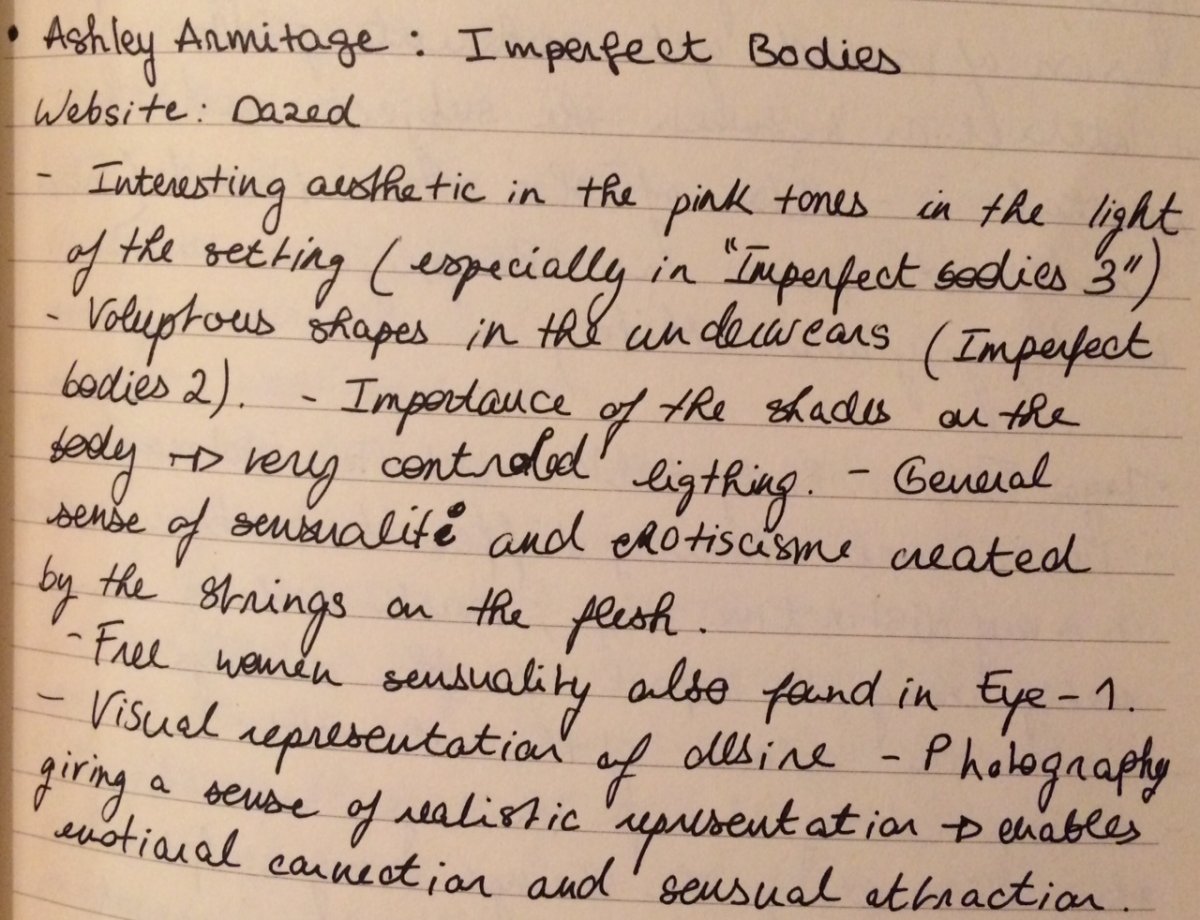 • Ashley Armitage : Imperfect Bodies
Website : Dazed
- Interesting aesthetic in the pink tones in the light
of the setting ( especially in "Imperfect bodies 3")
- Voluptous shapes in the underwears ( Imperfect
bodies 2). - Importance of the shades on the
body → very controled ligthing. - General
sense of sensualité and erotiscisme created
by the strings on the flesh.
- Free women sensuality also found in Eye-1.
- Visual representation of desire - Photography
giving a sense of realistic representation → enables
emotional connection and sensual attraction.